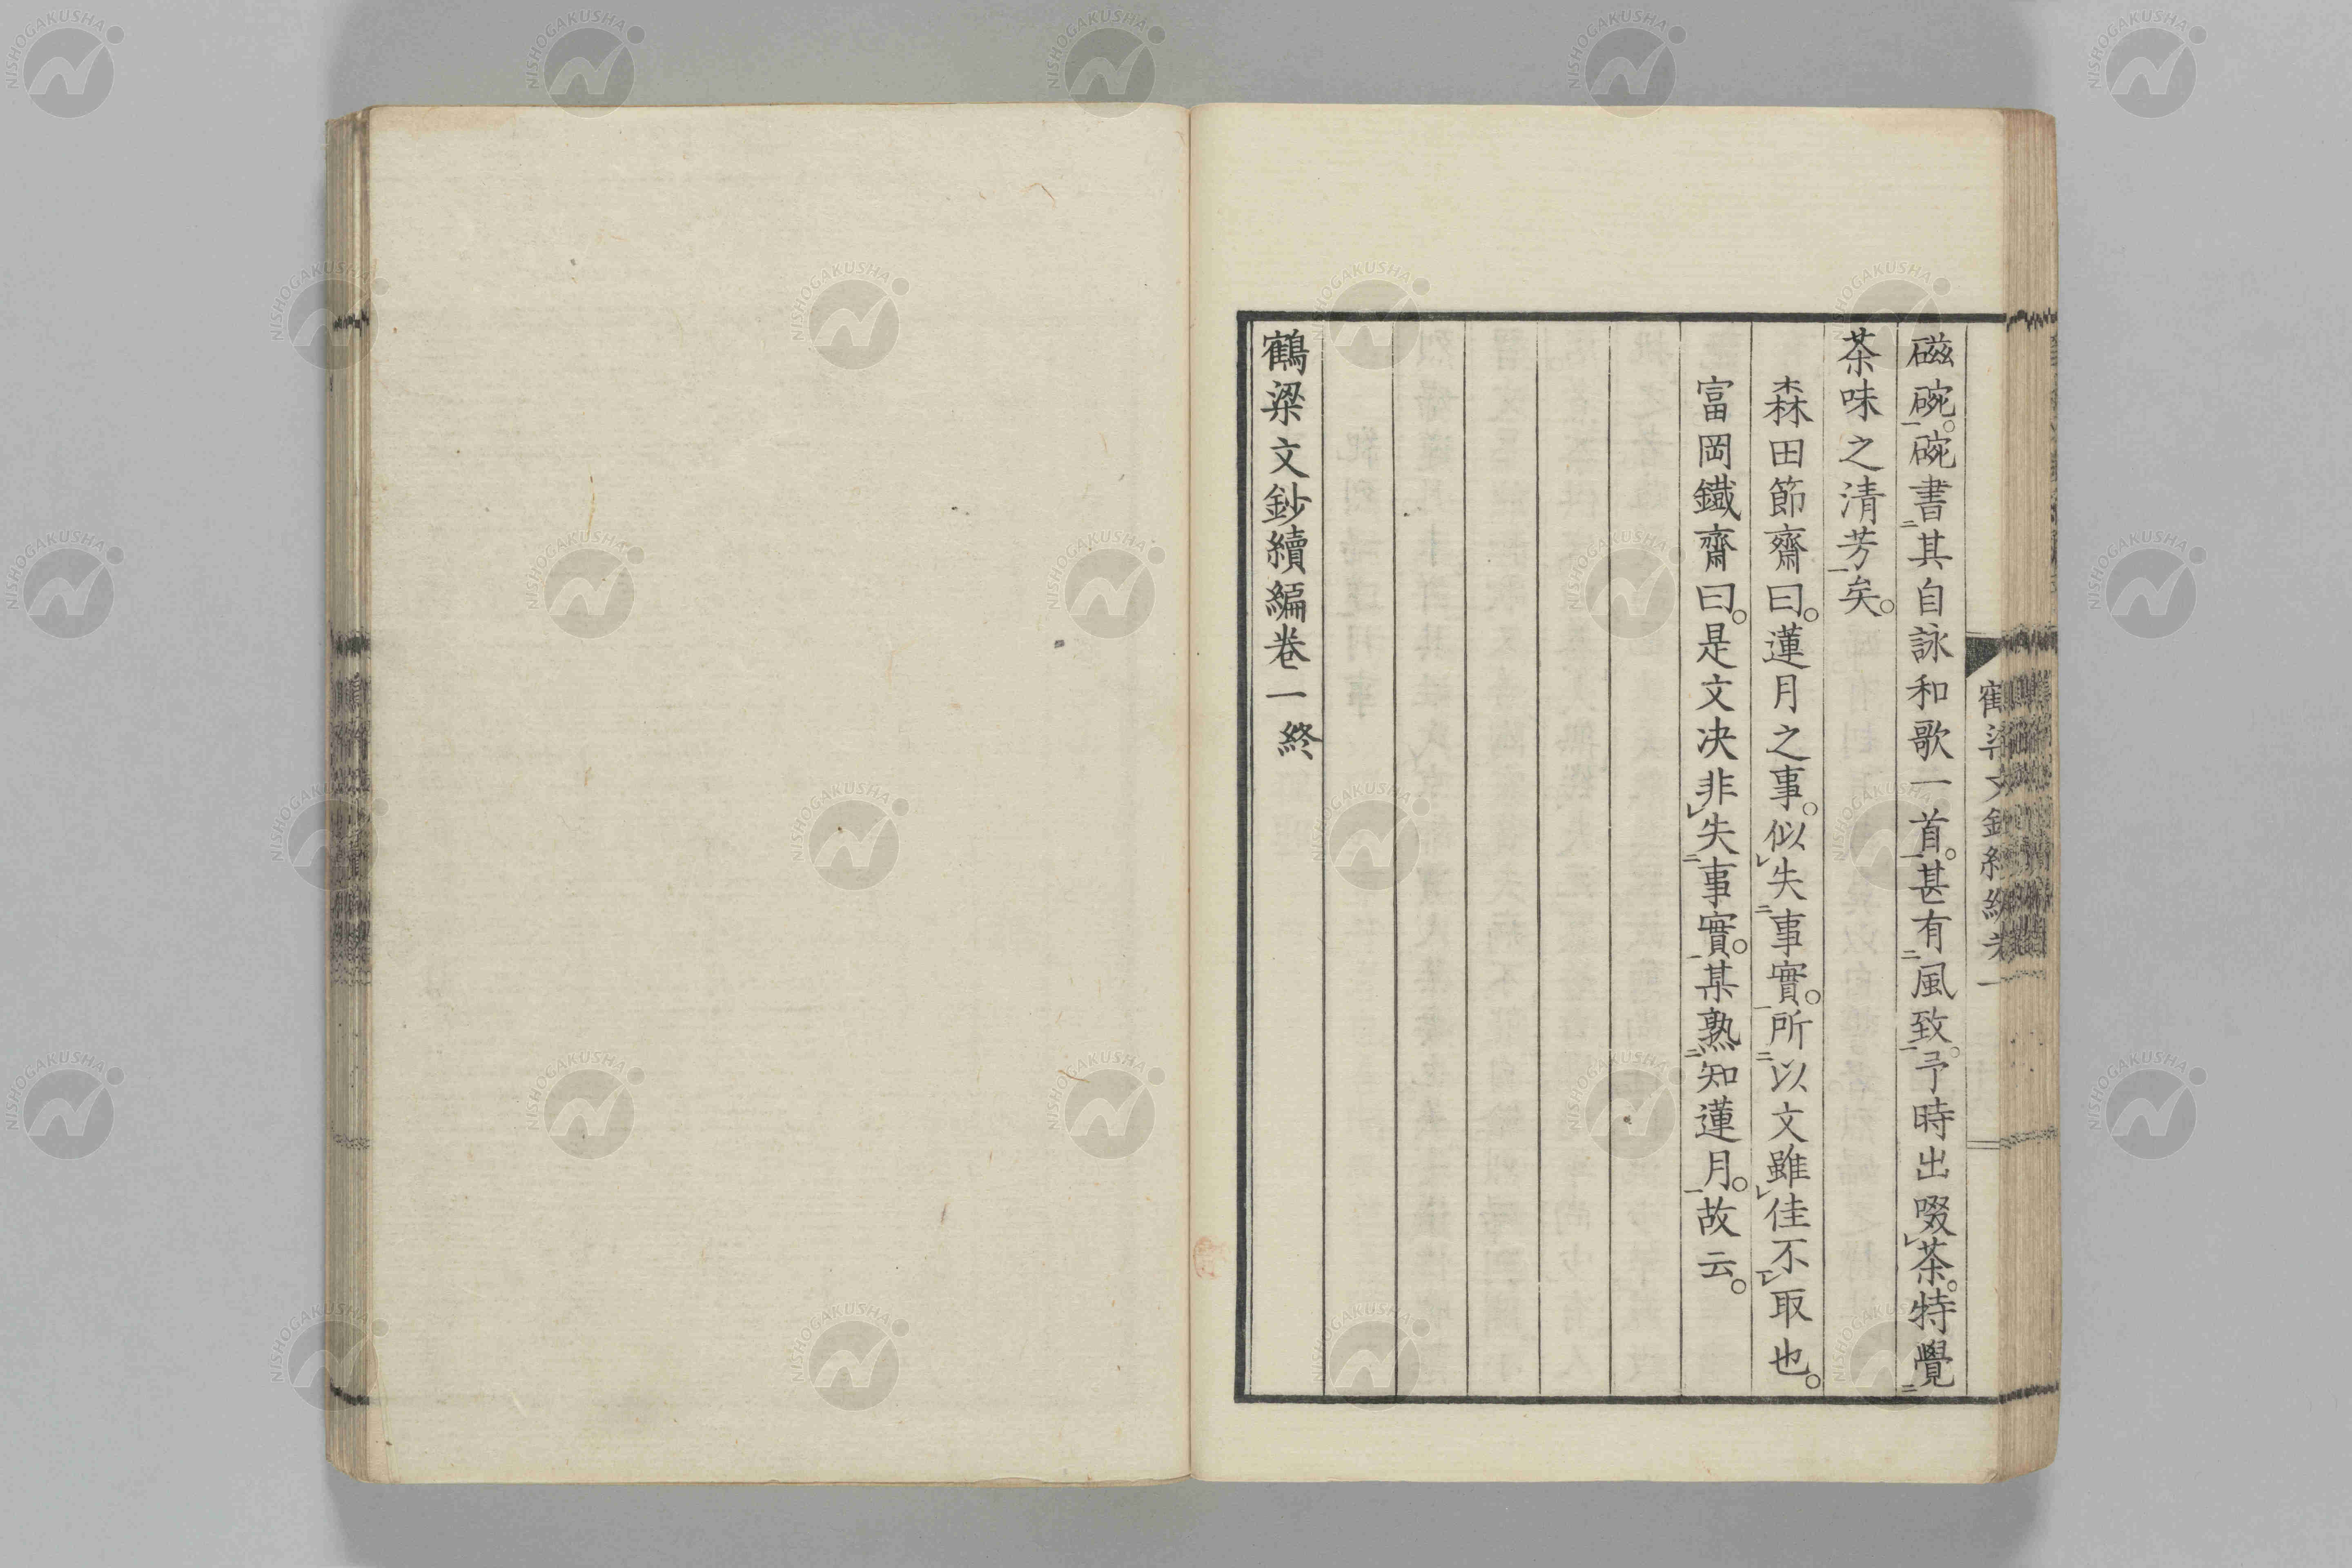 磁碗。碗書其自詠和歌一首。甚有風致。予時出啜茶。特覺
茶味之清芳矣。
森田節齋曰。蓮月之事。似失事實。所以文雖佳不取也。
富岡鐵齋曰。是文決非失事實。某熟知蓮月。故云。
鶴梁文鈔續編卷一終
鶴梁文鈔續編卷一
NISHOGAKUSHA